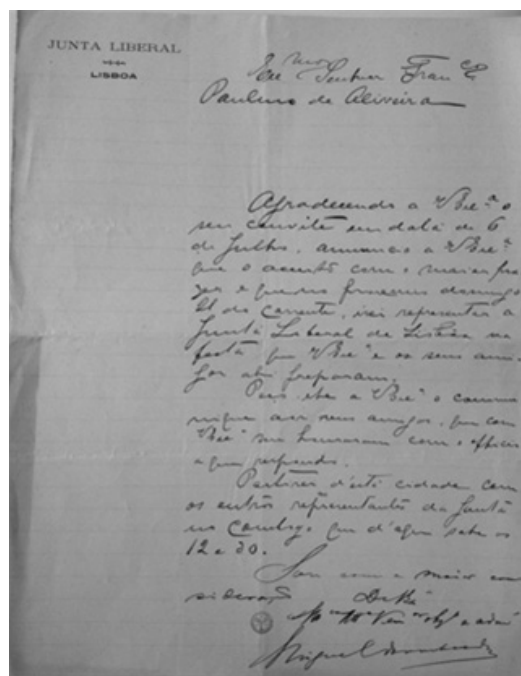 JUNTA LIBERAL
LISBOA
Exmo Senhor Franco
Paulino de Oliveira
Agradecendo a V. Exa o
seu convite em data de 6
de Julho, annuncio a V. Exa
que o acceito com o maior pra
zer e que no proximo domingo
21 do corrente, irei representar a
Junta Liberal de Lisboa na
festa que V. Exa e os seus ami
gos ahi preparam.
a V. Exa o commu
nique aos seus amigos, que com
V. Exa me honraram com o officio
a que respondo.
Partirei d'esta cidade com
os outros representantes da Junta
no comboyo que d'aqui sahe ás
12 e 30.
Sou com a maior con
sideração De V. Exa
Miguel Bombarda